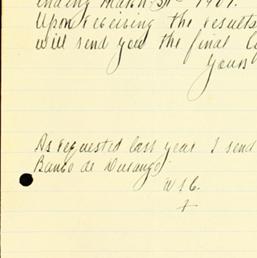 ending March 31st 1907.
Upon receiving the results
will send you the final Co
Yours
As requested last year I send
Banco de Durango
WSC.